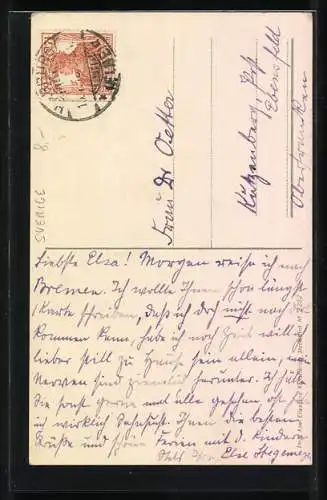 SVERIGE 8.-
Frau Dr. Oetter
Kutzenberg, Post
Ebensfeld
Oberfranken
Liebste Elsa! Morgen reise ich nach
Bremen. Ich wollte Ihnen schon längst
Karte schreiben, daß ich doch nicht nach
kommen kann, habe ich noch Zeit will
lieber still zu Hause sein allein, mein
Nerven sind ziemlich herunter. Ich hätte
Sie sonst gerne mal alle gesehen
ich wirklich Sehnsucht. Ihnen die besten
Grüße und schöne Ferien mit d. Kindern
Else